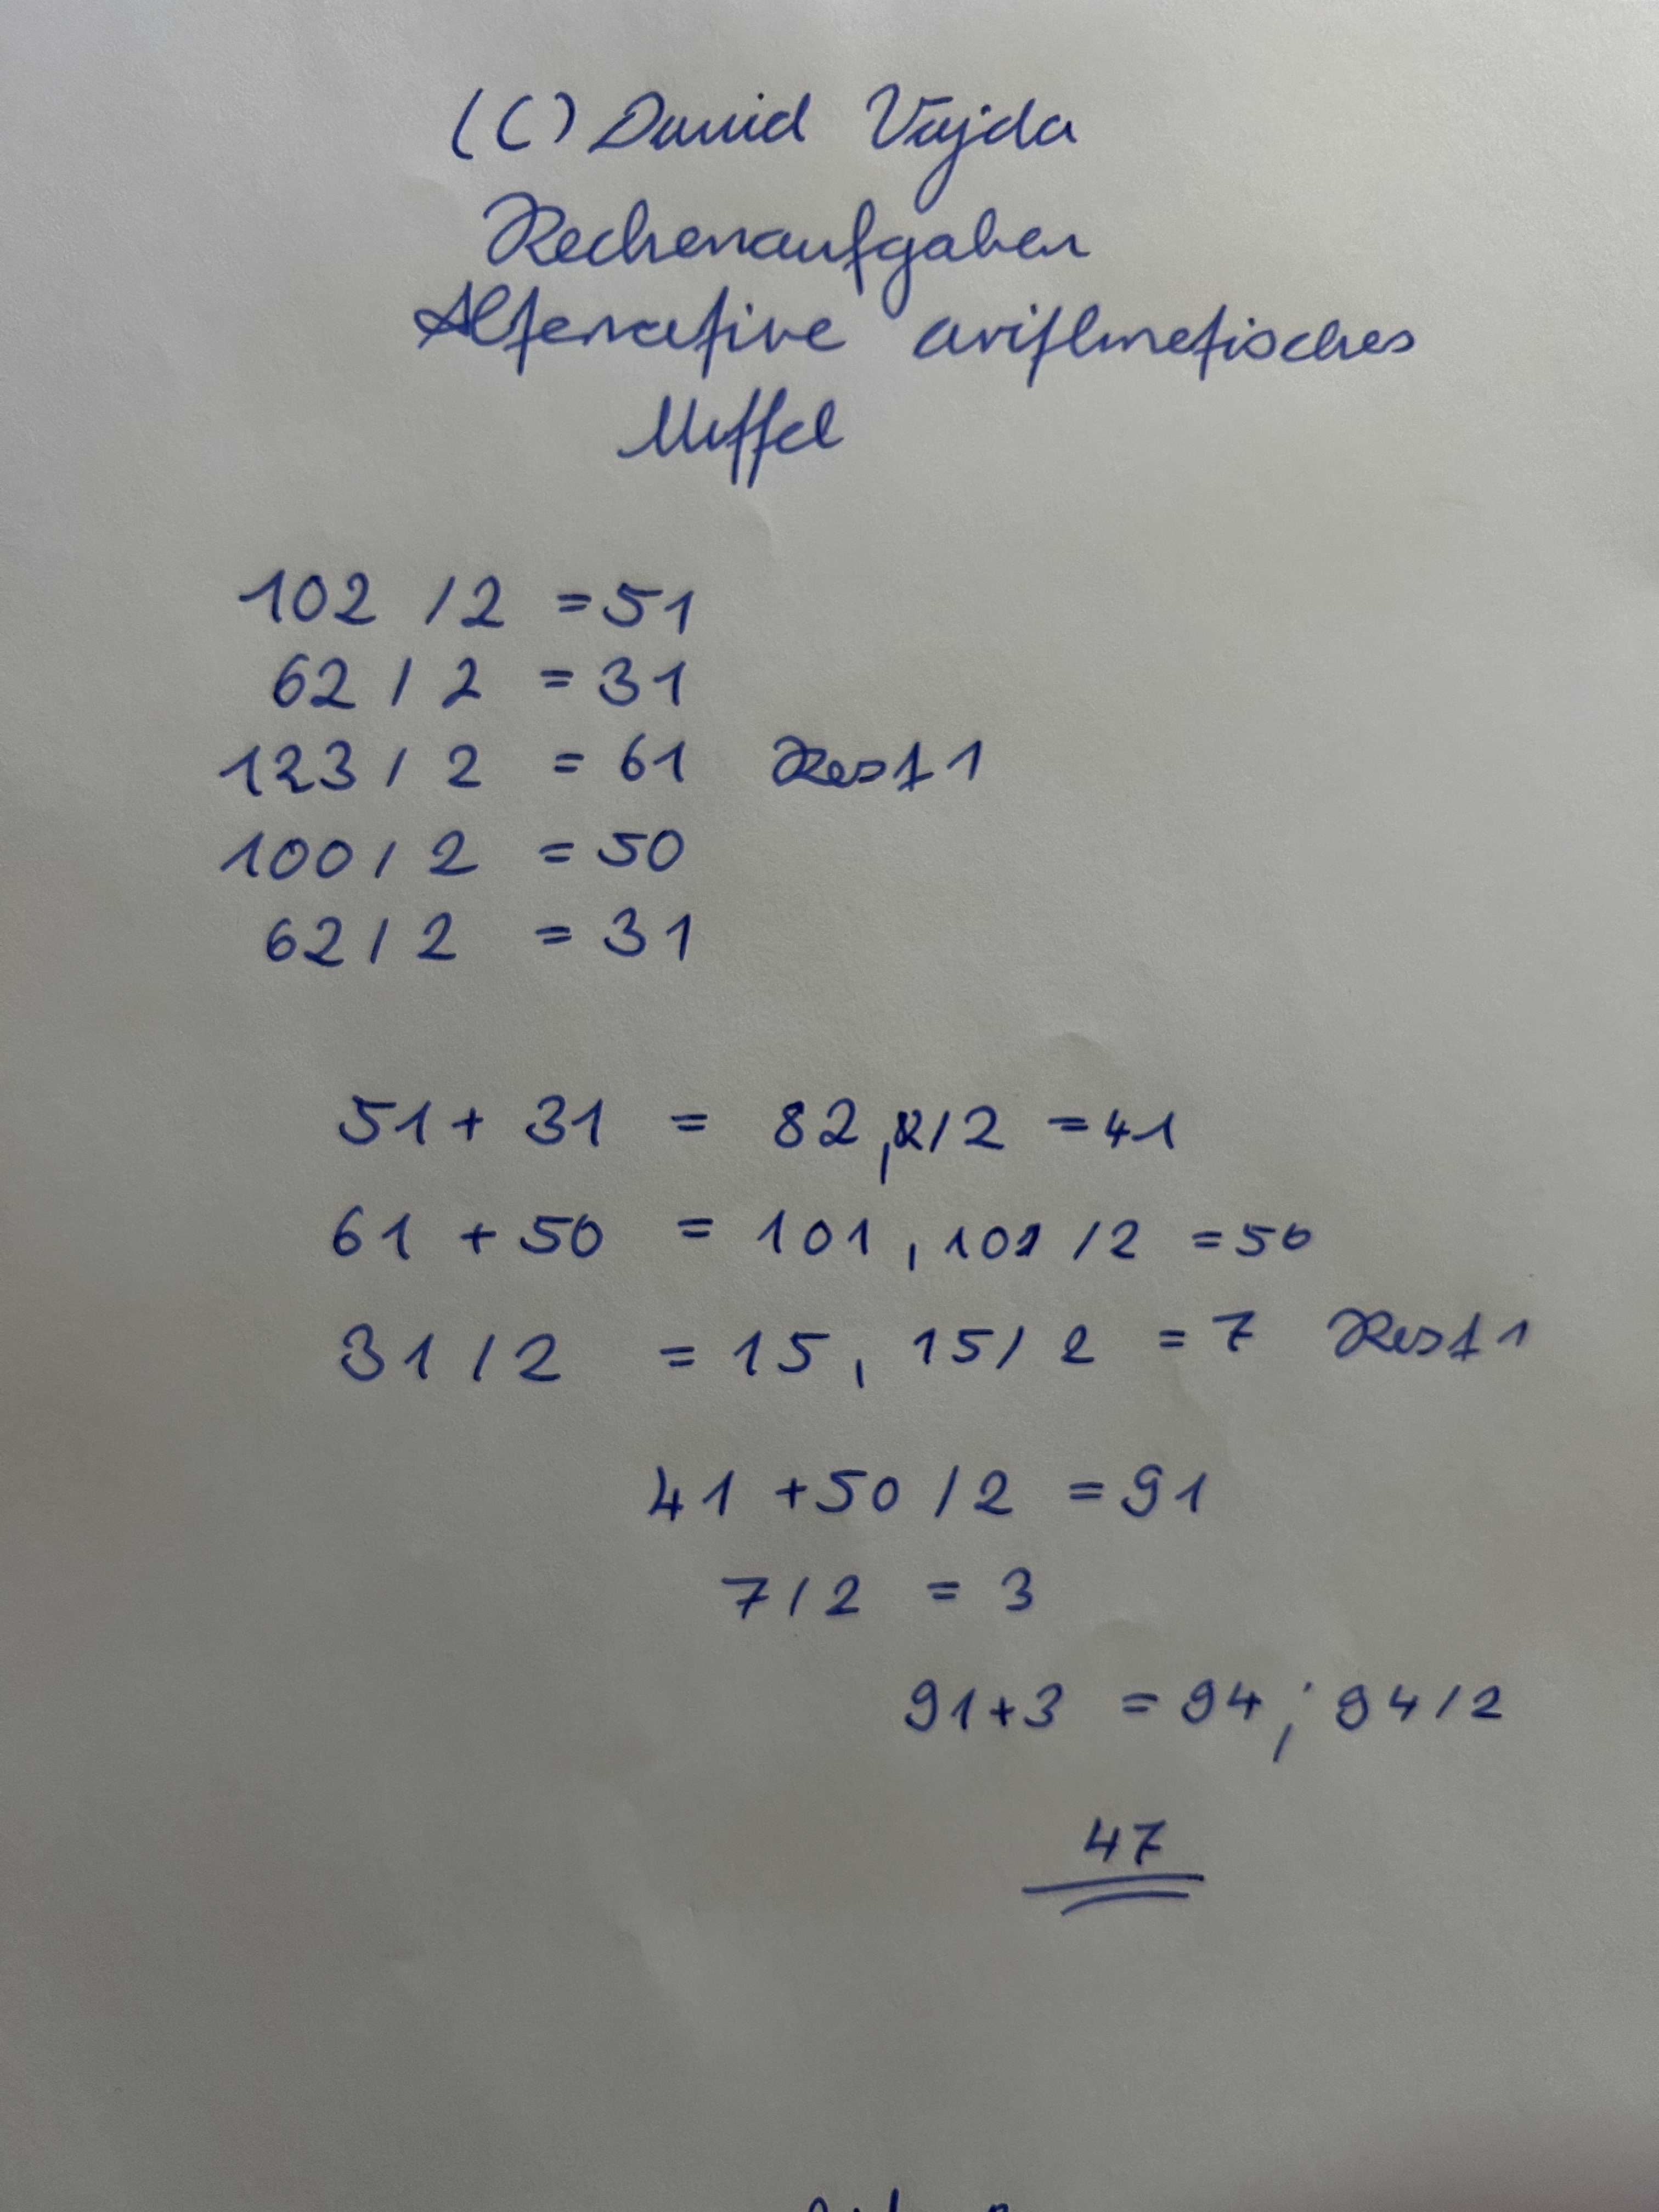 (C) David Vajda
Rechenaufgaben
Alternative arithmetisches
Mittel
102 / 2 = 51
62 / 2 = 31
123 / 2 = 61 Rest 1
100 / 2 = 50
62 / 2 = 31
51 + 31 = 82, /2 = 41
61 + 50 = 101, 101 / 2 = 50
31 / 2 = 15, 15 / 2 = 7 Rest 1
41 + 50 / 2 = 91
7 / 2 = 3
91 + 3 = 94; 94 / 2
47